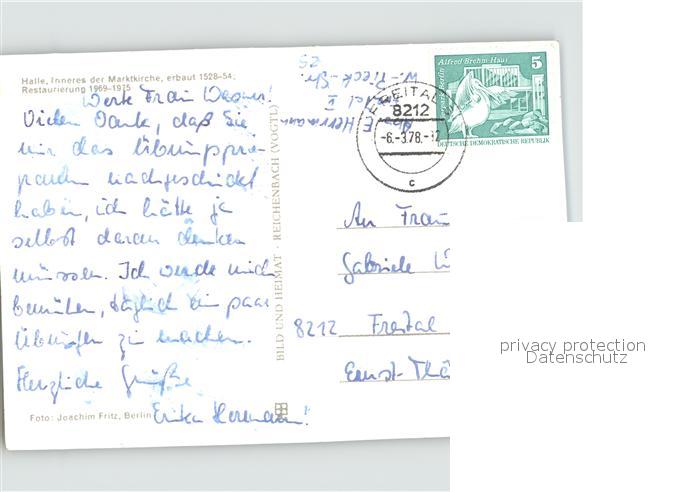 Halle, Inneres der Marktkirche, erbaut 1528-54;
Restaurierung 1969-1975
Werte Frau
Vielen Dank, daß Sie
mir das
nachgeschickt
haben, ich hätte ja
selbst daran denken
müssen. Ich werde mich
bemühen, täglich ein paar
zu machen.
Herzliche Grüße
Erika Hermann!
Foto: Joachim Fritz, Berlin
BILD UND HEIMAT · REICHENBACH (VOGTL)
Herrmann
W.-Pieck-Str.
25
FREITAL
8212
-6.-3.78.-12
c
Alfred Brehm Haus
5
DEUTSCHE DEMOKRATISCHE REPUBLIK
An Frau
Gabriele
8212 Freital
Ernst-Thä
privacy protection
Datenschutz